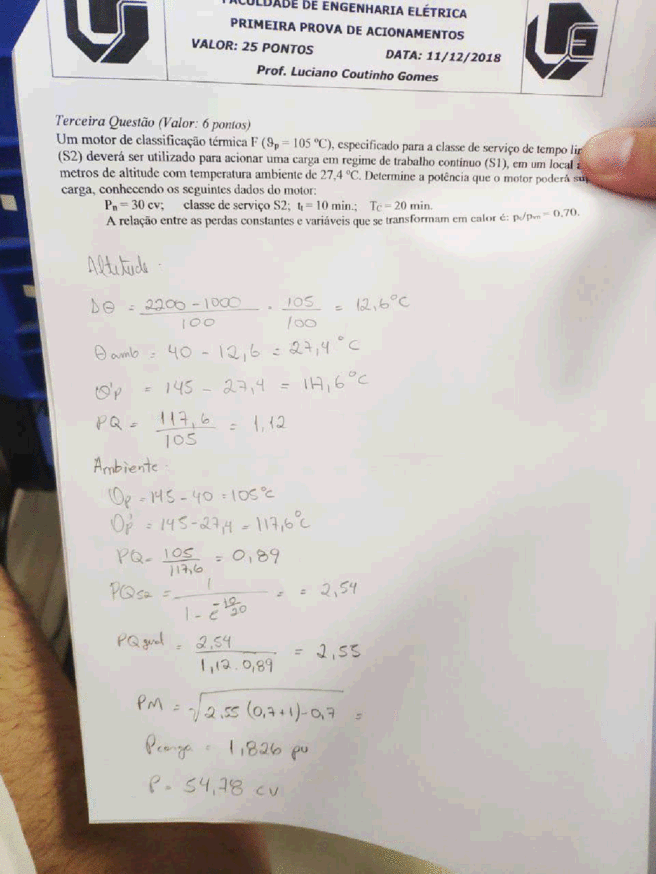 FACULDADE DE ENGENHARIA ELÉTRICA
PRIMEIRA PROVA DE ACIONAMENTOS
VALOR: 25 PONTOS DATA: 11/12/2018
Prof. Luciano Coutinho Gomes
Terceira Questão (Valor: 6 pontos)
Um motor de classificação térmica F (ϑp = 105 ºC), especificado para a classe de serviço de tempo
(S2) deverá ser utilizado para acionar uma carga em regime de trabalho contínuo (S1), em um local
metros de altitude com temperatura ambiente de 27,4 ºC. Determine a potência que o motor poderá
carga, conhecendo os seguintes dados do motor:
Pn = 30 cv; classe de serviço S2; tt = 10 min.; TC = 20 min.
A relação entre as perdas constantes e variáveis que se transformam em calor é: = 0,70.
Altitude.
Δθ = 2200 - 1000 / 100 . 105 / 100 = 12,6°C
θamb = 40 - 12,6 = 27,4°C
θ'p = 145 - 27,4 = 117,6°C
PQ = 117,6 / 105 = 1,12
Ambiente:
θp = 145 - 40 = 105°C
θp' = 145 - 27,4 = 117,6°C
PQ = 105 / 117,6 = 0,89
PQS2 = 1 / 1 - e^-10/20 = = 2,54
PQ geral = 2,54 / 1,12 . 0,89 = 2,55
PM = √2,55 (0,7+1) - 0,7 =
Pcarga = 1,826 pu
P = 54,78 cv